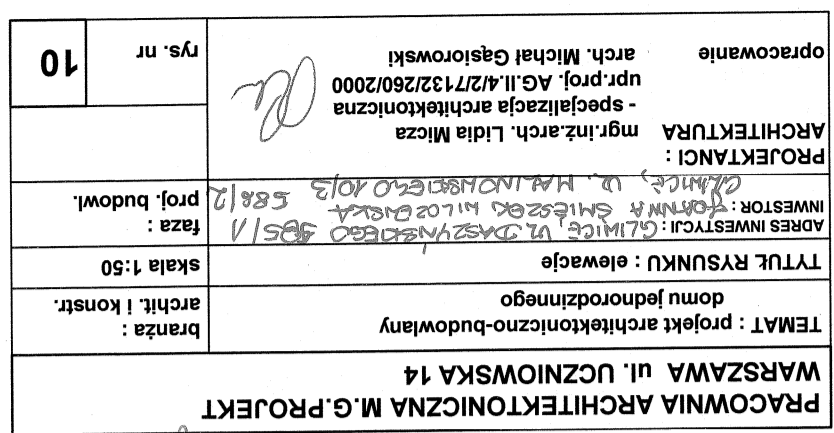 PRACOWNIA ARCHITEKTONICZNA M.G.PROJEKT
WARSZAWA ul. UCZNIOWSKA 14
TEMAT : projekt architektoniczno-budowlany
domu jednorodzinnego
branża :
archit. i konstr.
TYTUŁ RYSUNKU : elewacje
skala 1:50
ADRES INWESTYCJI : GLIWICE, UL. DASZYŃSKIEGO 585/1
INWESTOR : JOANNA ŚMIESZEK WILCZEWSKA
GLIWICE, UL. MALINOWSKIEGO 10/3 588/2
faza :
proj. budowl.
PROJEKTANCI :
ARCHITEKTURA mgr.inż.arch. Lidia Micza
- specjalizacja architektoniczna
upr.proj. AG.II.4/2/7132/260/2000
opracowanie arch. Michał Gąsiorowski
rys. nr
10